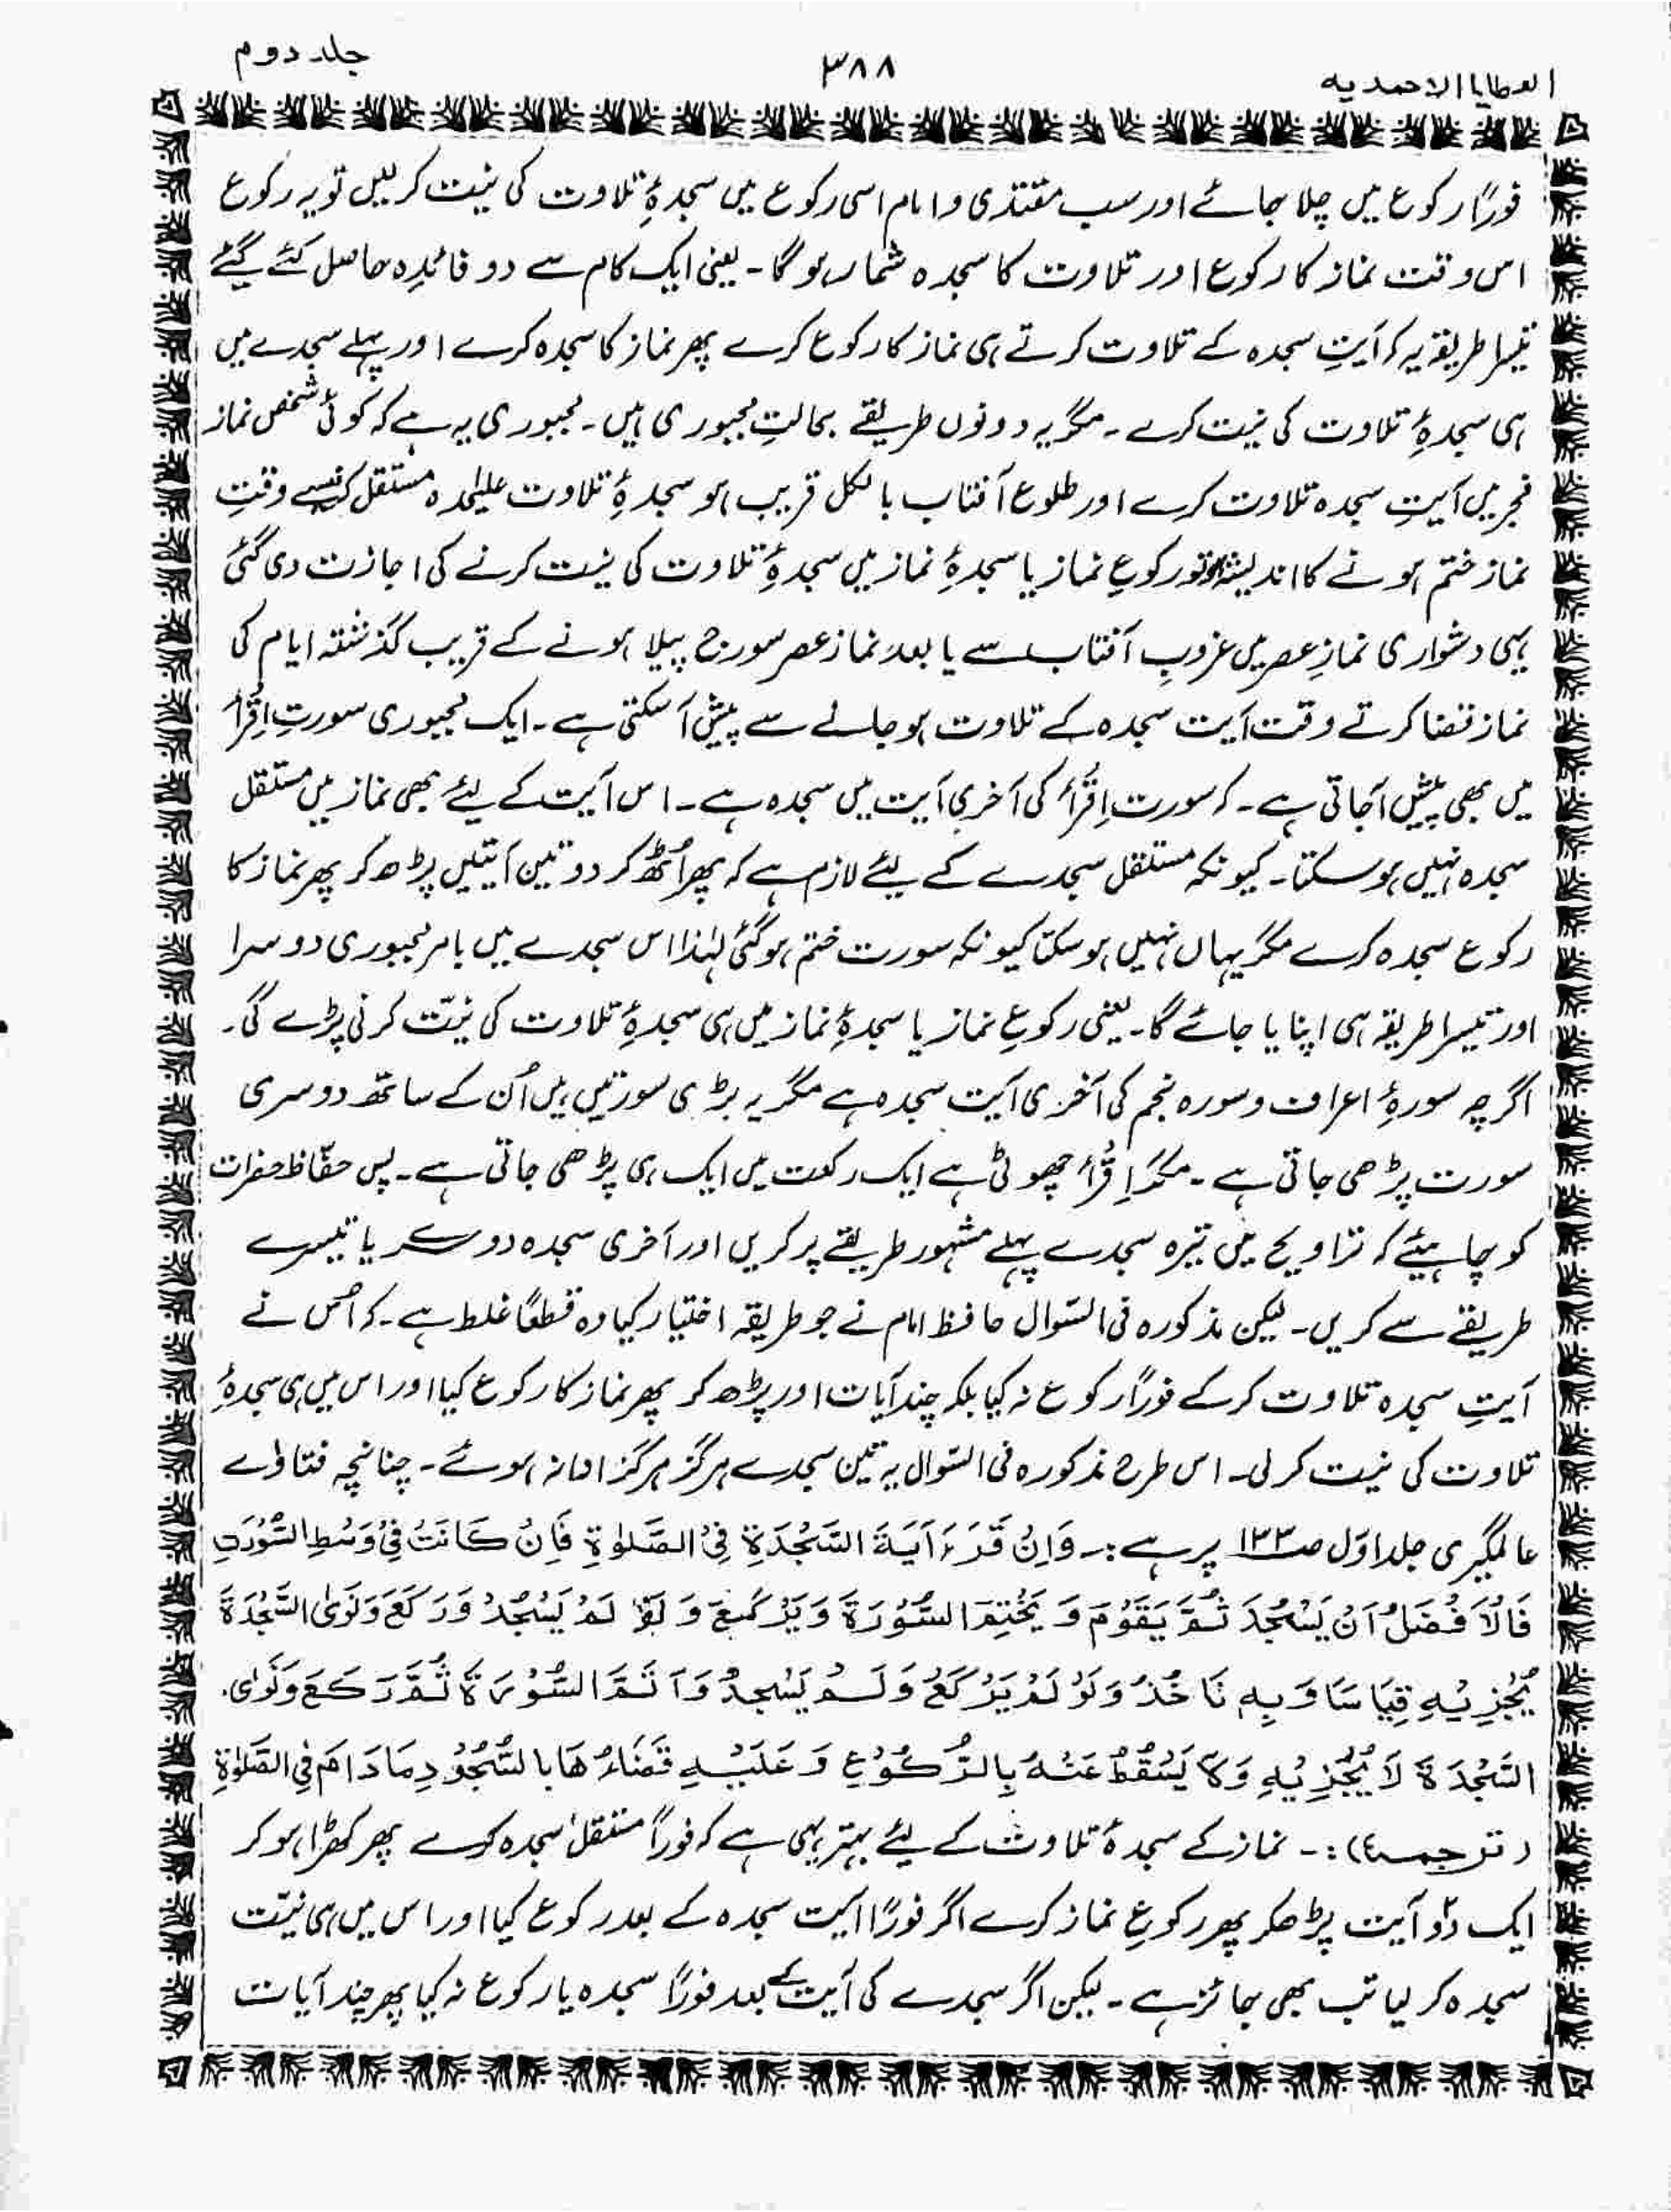 العطایا الاحمدیه
٣٨٨
جلد دوم
فورًا رکوع میں چلا جائے اور سب مقتدی و امام اسی رکوع میں سجدۂِ تلاوت کی نیت کرلیں تو یہ رکوع
اس وقت نماز کا رکوع اور تلاوت کا سجدہ شمار ہو گا۔ یعنی ایک کام سے دو فائدِہ حاصل کئے گیٔے
تیسرا طریقہ یہ کہ آیتِ سجدہ کے تلاوت کرتے ہی نماز کا رکوع کرے پھر نماز کا سجدہ کرے اور پہلے سجدے میں
ہی سجدۂِ تلاوت کی نیت کرے۔ مگر یہ دونوں طریقے بحالتِ مجبوری ہیں۔ مجبوری یہ ہے کہ کوئی شخص نماز
فجر میں آیتِ سجدہ تلاوت کرے اور طلوع آفتاب بالکل قریب ہو سجدۂِ تلاوت علیٰحدہ مستقل کرنیسے وقتِ
نماز ختم ہونے کا اندیشہ ہو تو رکوعِ نماز یا سجدۂِ نماز میں سجدۂِ تلاوت کی نیت کرنے کی اجازت دی گئی
یہی دشواری نمازِ عصر میں غروبِ آفتاب سے یا بعد نماز عصر سورج پیلا ہونے کے قریب گذشتہ ایام کی
نماز قضا کرتے وقت آیت سجدہ کے تلاوت ہو جانے سے پیش آ سکتی ہے۔ ایک مجبوری سورتِ اِقْرَأ
میں بھی پیش آجاتی ہے۔ کہ سورت اِقْرَأ کی آخری آیت میں سجدہ ہے۔ اس آیت کے لیٔے بھی نماز میں مستقل
سجدہ نہیں ہو سکتا۔ کیونکہ مستقل سجدے کے لیٔے لازم ہے کہ پھر اُٹھ کر دو تین آیتیں پڑھ کر پھر نماز کا
رکوع سجدہ کرے مگر یہاں نہیں ہو سکتا کیونکہ سورت ختم ہو گئی لہٰذا اس سجدے میں بامر مجبوری دوسرا
اور تیسرا طریقہ ہی اپنایا جائے گا۔ یعنی رکوعِ نماز یا سجدۂِ نماز میں ہی سجدۂِ تلاوت کی نیّت کرنی پڑے گی۔
اگرچہ سورۂِ اعراف و سورہ نجم کی آخری آیت سجدہ ہے مگر یہ بڑی سورتیں ہیں اُن کے ساتھ دوسری
سورت پڑھی جاتی ہے۔ مگر اِقْرَأ چھوٹی ہے ایک رکعت میں ایک ہی پڑھی جاتی ہے۔ پس حفّاظ حضرات
کو چاہیئے کہ تراویح میں تیرہ سجدے پہلے مشہور طریقے پر کریں اور آخری سجدہ دوسرے یا تیسرے
طریقے سے کریں۔ لیکن مذکورہ فی السّوال حافظ امام نے جو طریقہ اختیار کیا وہ قطعًا غلط ہے۔ کہ اُس نے
آیتِ سجدہ تلاوت کر کے فورًا رکوع نہ کیا بلکہ چند آیات اور پڑھ کر پھر نماز کا رکوع کیا اور اس میں ہی سجدۂِ
تلاوت کی نیت کر لی۔ اس طرح مذکورہ فی السّوال یہ تین سجدے ہرگز ہرگز ادا نہ ہوئے۔ چنانچہ فتاوٰے
عالمگیری جلد اوّل صـ١٣٣ پر ہے:۔ وَاِنْ قَرَءَ اٰیَةَ السَّجْدَةِ فِیْ الصَّلوٰةِ فَاِنْ کَانَتْ فِیْ وَسْطِ السُّوْرَةِ
فَالْاَفْضَلُ اَنْ یَسْجُدَ ثُمَّ یَقُوْمَ وَ یَخْتِمَ السُّوْرَةَ وَیَرْکَعَ وَ لَوْ لَمْ یَسْجُدْ وَرَکَعَ وَنَوٰی السَّجْدَةَ
یُجْزِیْهِ قِیَاسًا وَ بِهٖ نَاخُذُ وَلَوْ لَمْ یَرْکَعْ وَ لَمْ یَسْجُدْ وَ اَتَمَّ السُّوْرَةَ ثُمَّ رَکَعَ وَنَوٰی۔
السَّجْدَةَ لَا یُجْزِیْهِ وَلَا یَسْقُطُ عَنْهُ بِالرُّکُوْعِ وَ عَلَیْهِ قَضَاءُ هَا بِالسُّجُوْدِ مَا دَامَ فِی الصَّلٰوةِ
(ترجمہ):۔ نماز کے سجدۂ تلاوت کے لیٔے بہتر یہی ہے کہ فوراً مستقل سجدہ کرے پھر کھڑا ہو کر
ایک دو آیت پڑھکر پھر رکوعِ نماز کرے اگر فورًا آیت سجدہ کے بعد رکوع کیا اور اس میں ہی نیّت
سجدہ کر لیا تب بھی جائز ہے۔ لیکن اگر سجدے کی آیت کے بعد فورًا سجدہ یا رکوع نہ کیا پھر چند آیات